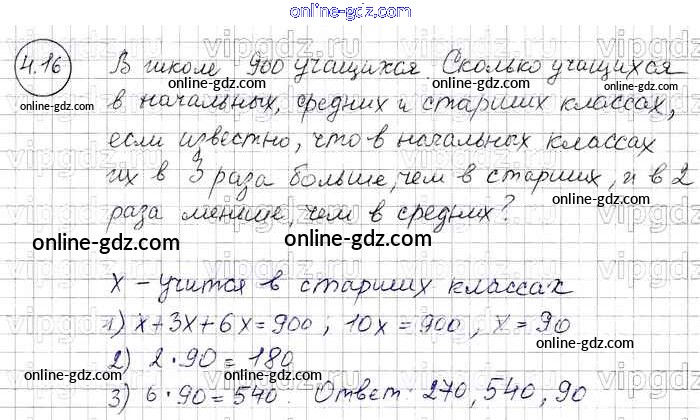 online-gdz.com
4.16 В школе 900 учащихся. Сколько учащихся
online-gdz.com online-gdz.com online-gdz.com
в начальных, средних и старших классах,
online-gdz.com
если известно, что в начальных классах
их в 3 раза больше, чем в старших, и в 2
online-gdz.com online-gdz.com
раза меньше, чем в средних?
online-gdz.com online-gdz.com online-gdz.com
x – учится в старших классах
online-gdz.com
1) x+3x+6x=900 ; 10x=900 , x=90
online-gdz.com online-gdz.com
2) 2·90=180
online-gdz.com online-gdz.com
3) 6·90=540. Ответ: 270, 540, 90
online-gdz.com